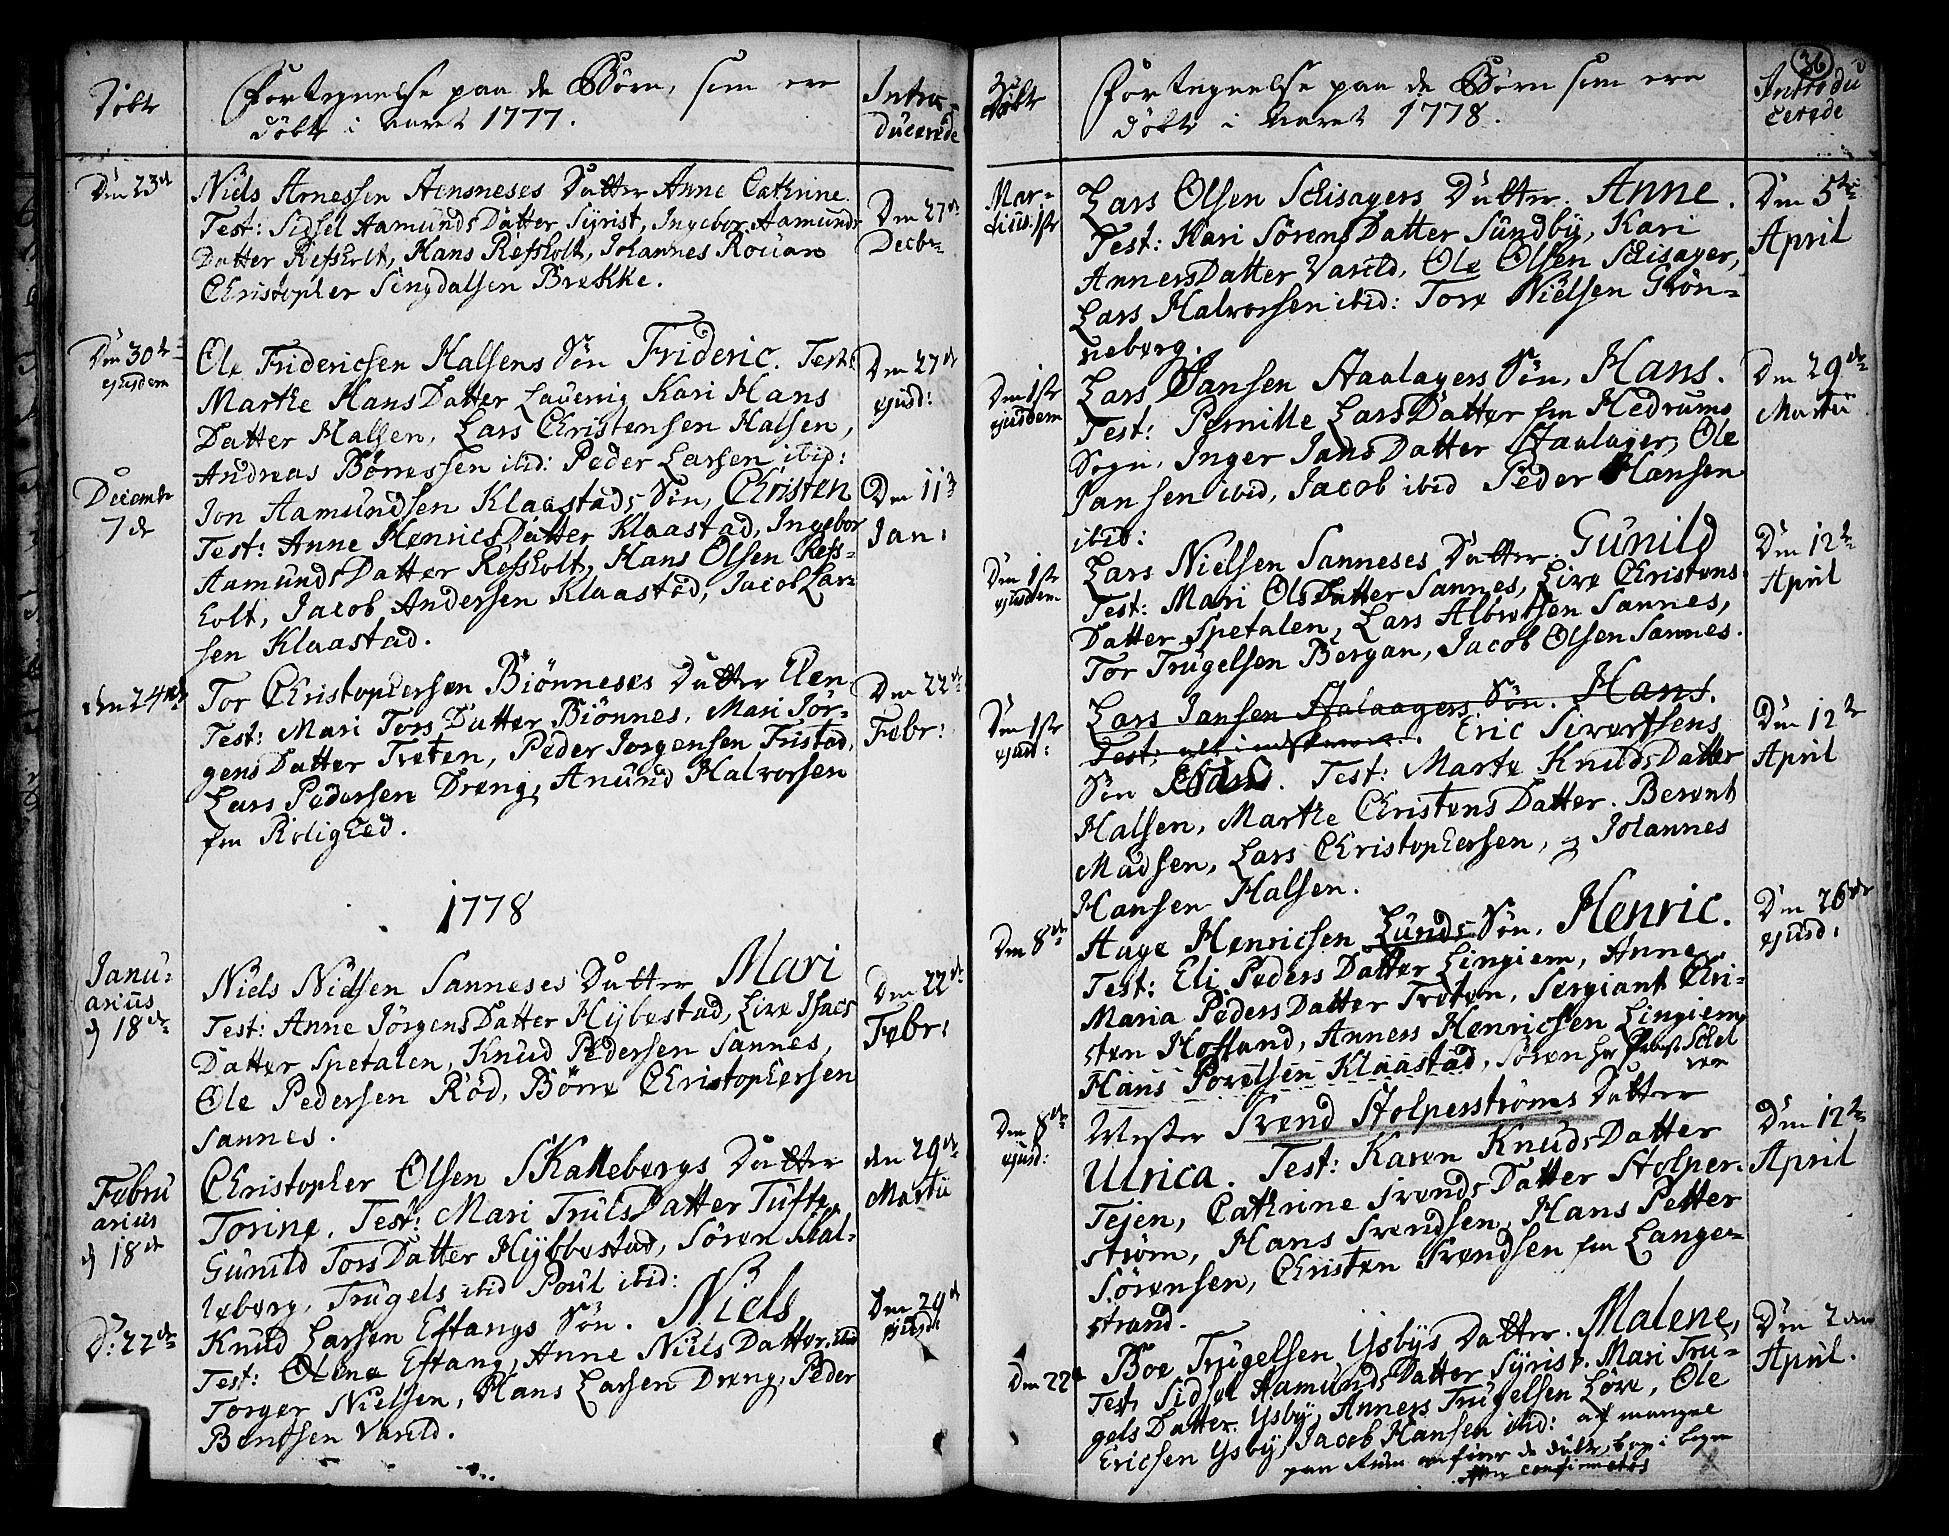 Døbte
Fortegnelse paa de Børn, som ere
døbte i Aaret 1777.
Intro-
ducerede
Den 23de
Niels Arnessen Aensneses Datter Anne Cathrine.
Test: Sidsel AamundsDatter Syrist, Ingebor Aamunds
Datter Refsholt, Hans Refsholt, Johannes Rouan
Christopher Bredalsen Brekke.
Den 27de
Decbr
Den 30te
ejusdem
Ole Fridericsen Halsens Søn Frideric. Test:
Marthe HansDatter Lauerig Kari Hans
Datter Halsen, Lars Christensen Halsen,
Andreas Børressen ibid: Peder Larsen ibid:
Den 27de
ejusd:
Decembr
7de
Jon Aamundsen Klaastads Søn, Christen
Test: Anne HenricsDatter Klaastad, Ingebor
AamundsDatter Refsholt, Hans Olsen Refs-
holt, Jacob Andersen Klaastad, Jacob Lar-
sen Klaastad.
Den 11te
Jan:
den 24de
Tor Christophersen Biønneses Datter Elen
Test: Mari TorsDatter Biønnes, Mari Jør-
gensDatter Treten, Peder Jorgensen Fristad,
Lars Pedersen Dreng, Anund Halvorsen
fra Rolighed.
Den 22de
Febr:
1778
Janu-
arius
d 18de
Niels Nielsen Sanneses Datter Mari
Test: Anne JørgensDatter Hybestad, Live Isacs
Datter Spetalen, Knud Pedersen Sannes,
Ole Pedersen Rød, Børre Christophersen
Sannes.
Den 22de
Febr:
Febru
arius
d 18de
Christopher Olsen SKallebergs Datter
Torine, Test: Mari TrulsDatter Tufte,
Gunild TorsDatter Hybbestad, Søren Skal-
leberg, Trugels ibid Poul ibid:
den 29de
Martii
D: 22de
Knud Larsen Eftangs Søn. Niels
Test: Olena Eftang, Anne NielsDatter ibid
Torger Nielsen, Hans Larsen Dreng, Peder
Bentsen Varild.
Den 29de
ejusd:
36
Døbte
Fortegnelse paa de Børn som ere
døbte i Aaret 1778.
Introdu
cerede
Mar-
tius 1ste
Lars Olsen Schisagers Datter. Anne.
Test: Kari SørensDatter Sundby, Kari
AnnersDatter Varild, Ole Olsen Schisager,
Lars Halvorsen ibid: Tore Nielsen Grøn-
neberg.
Den 5te
April
Den 1ste
ejusdem
Lars Jansen Aaalagers Søn, Hans.
Test: Pernille LarsDatter fra Hedrums
Sogn, Inger JansDatter Haalager, Ole
Jansen ibid, Jacob ibid Peder Hansen
ibid:
Den 29de
Martii
Den 1ste
ejusdem
Lars Nielsen Sanneses Datter. Gunild
Test: Mari OlsDatter Sannes, Live Christens
Datter Spetalen, Lars Albretsen Sannes,
Tor Trugelsen Bergan, Jacob Olsen Sannes.
Den 12te
April
Den 1ste
ejusd:
Lars Jansen Aalaagers Søn. Hans.
Test: Eric Sivertsens
Søn Test: Marte KnudsDatter
Halsen, Marthe ChristensDatter. Berent
Madsen, Lars Christophersen, og Johannes
Hansen Halsen.
Den 12te
April
Den 8de
Hage Henricsen Lunds Søn, Henric.
Test: Eli PedersDatter Lingiem, Anne
Maria PedersDatter Treten, Sergiant Chri-
sten Hofland, Anners Henricsen Lingiem,
Hans Povelsen Klaastad, Søren
Den 26de
ejusd:
Den 8de
ejusd:
Mester Svend Stolperstrøms Datter
Ulrica. Test: Karen KnudsDatter
Tejen, Cathrine SvendsDatter Stolper-
strøm, Hans Svendsen, Hans Petter
Sørensen, Christen Svendsen fra Lange-
strand.
Den 12te
April
Den 22de
Boe Trugelsen Ysbys Datter. Malene,
Test, Sidsel AamundsDatter Syrist. Mari Tru-
gelsDatter. Ysby, Anners Trugelsen Løve, Ole
Ericsen Ysby, Jacob Hansen ibid: af mangel
paa Rum anføres de døbte børn i bogen
efter confirmatos
Den 2den
April.